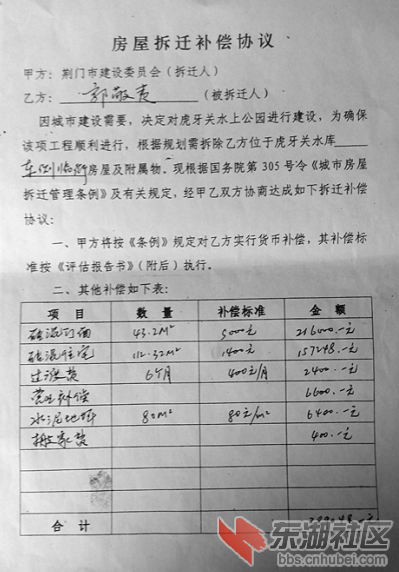 房屋拆迁补偿协议
甲方：荆门市建设委员会（拆迁人）
乙方：郭敬贵（被拆迁人）
因城市建设需要，决定对虎牙关水上公园进行建设，为确保
该项工程顺利进行，根据规划需拆除乙方位于虎牙关水库
东侧临街房屋及附属物。现根据国务院第305号令《城市房屋
拆迁管理条例》及有关规定，经甲乙双方协商达成如下拆迁补偿
协议：
一、甲方将按《条例》规定对乙方实行货币补偿，其补偿标
准按《评估报告书》（附后）执行。
二、其他补偿如下表：
项目 数量 补偿标准 金额
砖混门面 43.2M² 5000元 216000.-元
砖混住宅 112.32M² 1400元 157248.-元
过渡费 6个月 400元/月 2400.-元
营业补偿 6600.-元
水泥地坪 80M² 80元/m² 6400.-元
搬家费 400.-元
合计
东湖社区
bbs.cnhubei.com